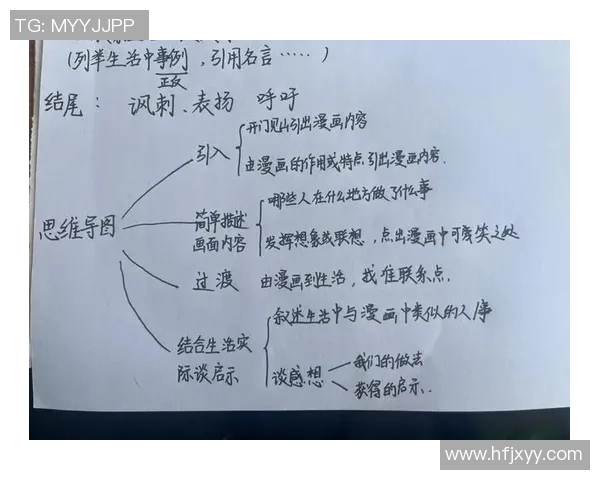 TG: MYYJJPP
(列举生活中事例，引用名言……)
正反
结尾： 讽刺、表扬 呼吁
思维导图
引入
开门见山引出漫画内容
由漫画的作用或特点引出漫画内容.
简单描述
画面内容
哪些人在什么地方做了什么事
发挥想象或联想，点出漫画中可笑之处
过渡 由漫画到生活，找准联系点.
结合生活实
际谈启示
叙述生活中与漫画中类似的人事
谈感想
我们的做法
获得的启示.
www.hfjxyy.com